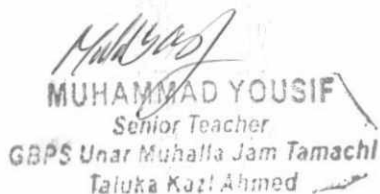 MUHAMMAD YOUSIF
Senior Teacher
GBPS Unar Muhalla Jam Tamachi
Taluka Kazi Ahmed